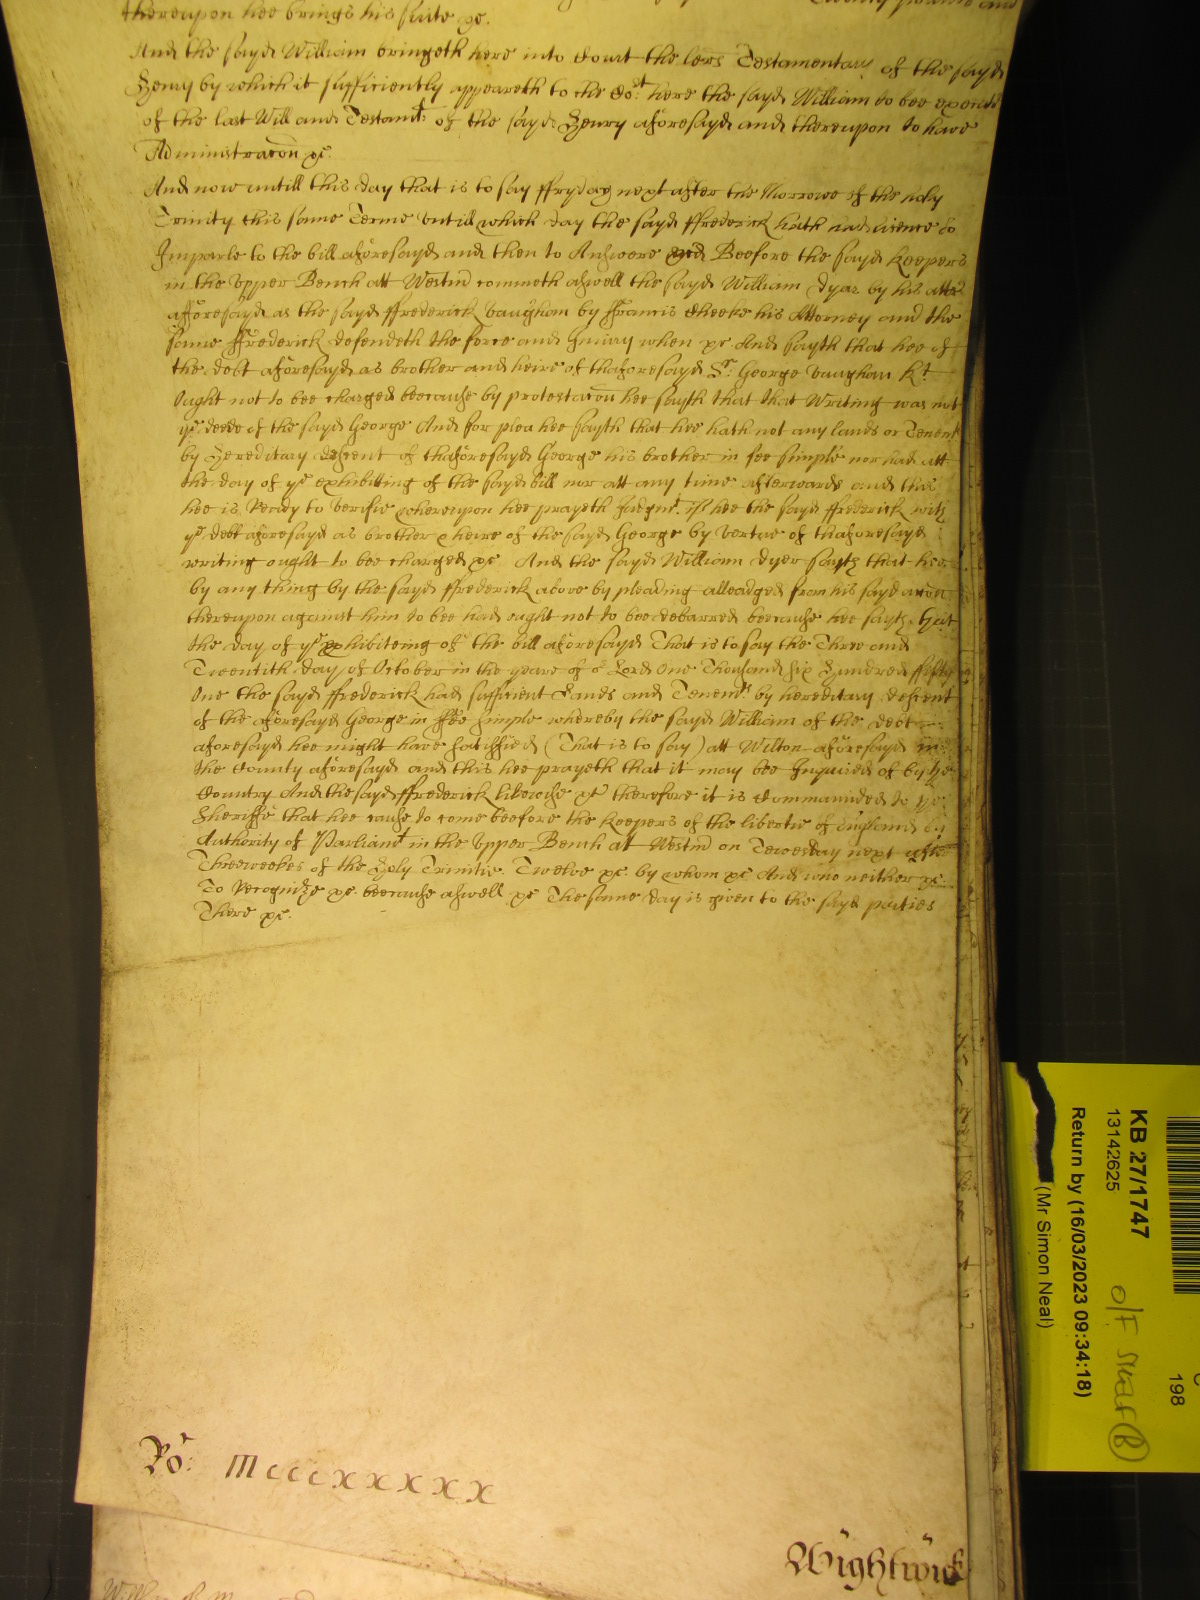 thereupon hee brings his suite &c.
And the sayd William bringeth here into Court the lers Testamentary of the sayd
Henry by which it sufficiently appeareth to the Cort here the sayd William to bee
of the last Will and Testamt of the sayd Henry aforesayd and thereupon to have
Administracon &c
And now untill this day that is to say ffryday next after the Morrowe of the holy
Trinity this same Terme untill which day the sayd ffrederick hath had licence to
Imparle to the bill aforesayd and then to Answere Beefore the sayd Keepers
in the vpper Bench att Westm commeth aswell the sayd William Dyar by his
aforesayd as the sayd ffrederick Vaughan by ffrancis Cheeke his Attorney and the
same ffrederick defendeth the force and Iniury when &c And sayth that hee of
the debt aforesayd as brother and heire of thaforesayd Sr. George Vaughan Kt
Ought not to bee charged beecause by protestacon hee sayth that that Writing was not
ye deede of the sayd George And for plea hee sayth that hee hath not any lands or Tenemts
by Hereditary descent of thaforesayd George his brother in fee simple nor had att
the day of ye exhibiting of the sayd bill nor att any time afterwards and this
hee is Ready to verifie whereupon hee prayeth Iudgmt. if hee the sayd ffrederick with
ye debt aforesayd as brother & heire of the sayd George by vertue of thaforesayd
writing ought to bee charged &c And the sayd William Dyer sayth that hee
by any thing by the sayd ffrederick above by pleading alleadged from his sayd accon
thereupon against him to bee had ought not to bee debarred beecause hee sayth that
the day of ye exhibiteing of the bill aforesayd That is to say the Three and
Twentith day of October in the yeare of or Lord One Thousand six Hundred fifty
One the sayd ffrederick had sufficient Lands and Tenemts by hereditary descent
of the aforesayd George in ffee simple whereby the sayd William of the debt
aforesayd hee might have satisfied (That is to say) att Wilton aforesayd in
the County aforesayd and this hee prayeth that it may bee Inquired of by the
Country And the sayd ffrederick likewise &c therefore it is Commaunded to ye
Sheriffe that hee cause to come beefore the Keepers of the libertie of England by
Authority of Parliamt in the vpper Bench att Westm on Tewesday next after
Threeweekes of the Holy Trinitie Twelve &c by whom &c And who neither &c
To Recognize &c beecause aswell &c The same day is given to the sayd parties
There &c.
Ro: Mcccxxxxx
Wightwick
KB 27/1747
13142625
Return by (16/03/2023 09:34:18)
(Mr Simon Neal)
O/F
198